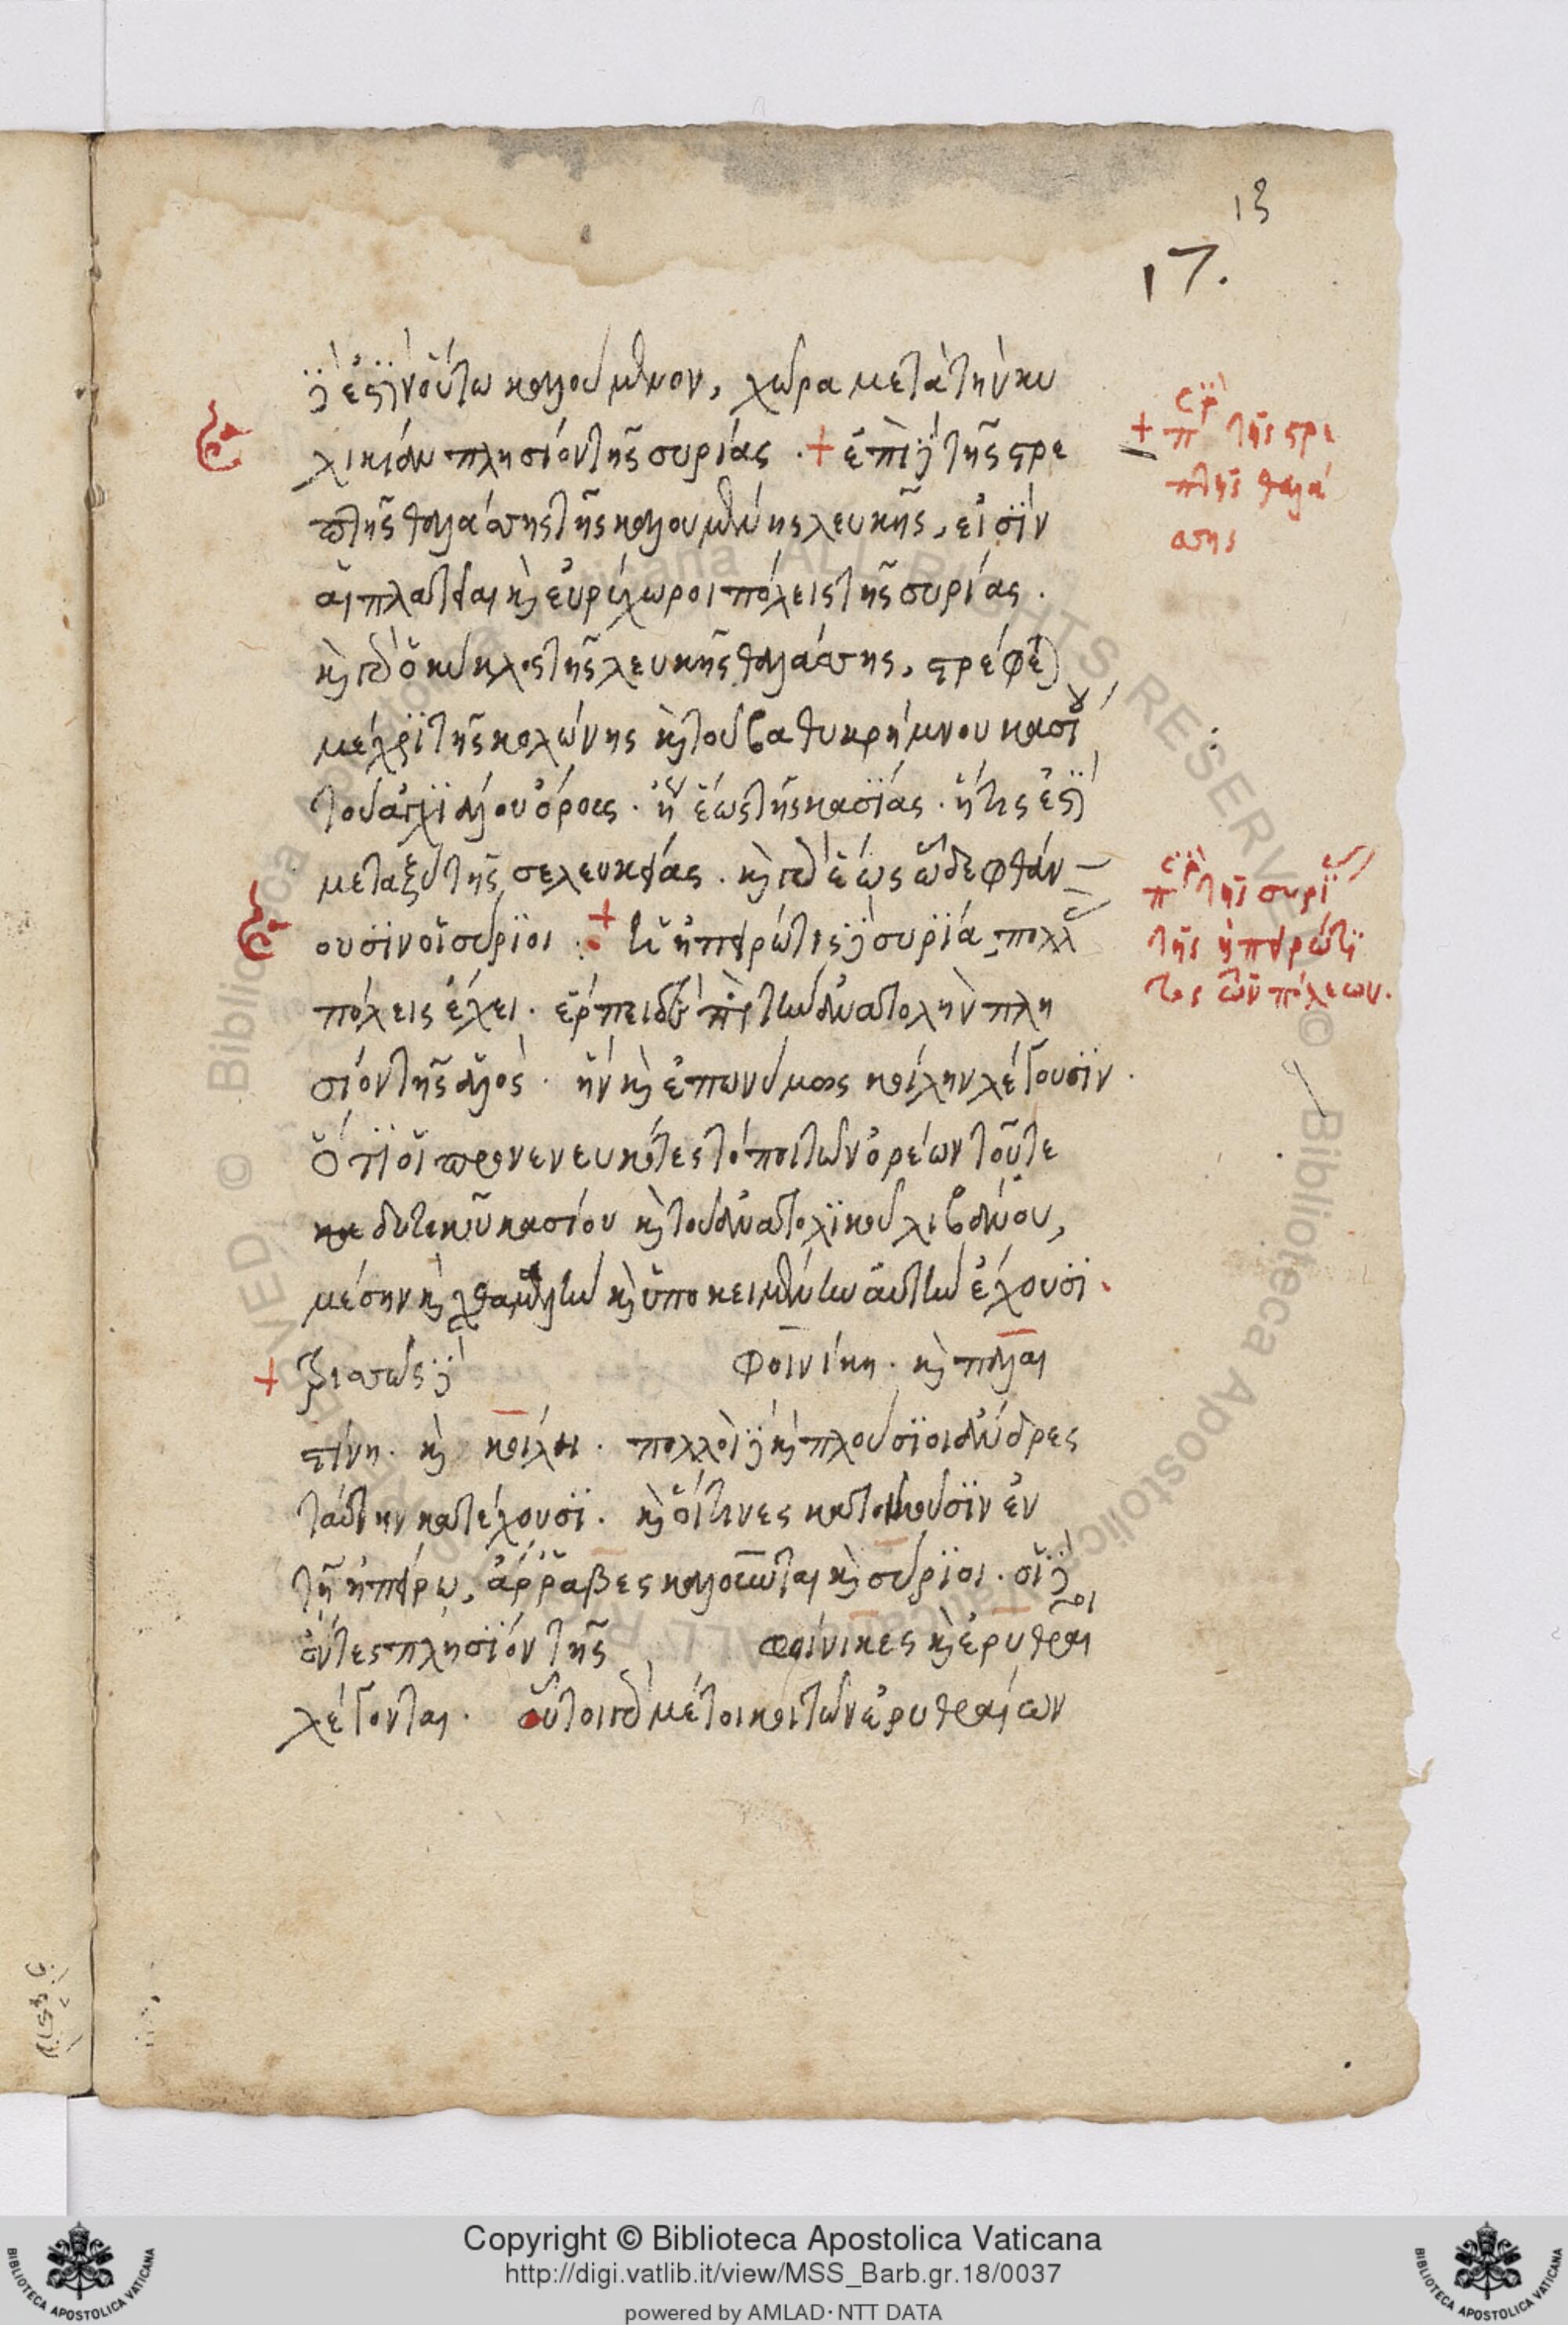 13
17.
δέ ἐστιν οὕτω καλούμενον, χώρα μετὰ τὴν κι
λικίαν πλησίον τῆς συρίας . + ἐπὶ δὲ τῆς στρε
πτῆς θαλάσσης τῆς καλουμένης λευκῆς, εἰσὶν
αἱ πλατεῖαι καὶ εὐρύχωροι πόλεις τῆς συρίας .
καὶ ὁ κύκλος τῆς λευκῆς θαλάσσης, στρέφεται
μέχρι τῆς κολώνης καὶ τοῦ βαθυκρήμνου κασίου
τοῦ αἰγιαλοῦ ὄρους . ἢ ἕως τῆς κασίας . ἥτις ἐστὶ
μεταξὺ τῆς σελευκείας . καὶ ἕως ὧδε φθάν
ουσιν οἱ σύριοι . + ἡ ἠπειρώτις δὲ συρία πολλὰς
πόλεις ἔχει . ἕρπει δὲ πρὸς τὴν ἀνατολὴν πλη
σίον τῆς ἁλός . ἣν καὶ ἐπωνύμως κοίλην λέγουσιν .
ὅτι οἱ προνενευκότες τόποι τῶν ὀρέων τοῦτε
δυτικοῦ κασίου καὶ τοῦ ἀνατολικοῦ λιβάνου,
μέσην καὶ χθαμαλὴν καὶ ὑποκειμένην αὐτὴν ἔχουσι .
+ δισσῶς δὲ φοινίκη . καὶ παλαι
στίνη . καὶ κοίλη . πολλοὶ δὲ καὶ πλούσιοι ἄνδρες
ταύτην κατέχουσι . καὶ οἵτινες κατοικοῦσιν ἐν
τῇ ἠπείρω, ἄρραβες καλοῦνται καὶ σύριοι . οἱ δὲ
ὄντες πλησίον τῆς φοίνικες καὶ ἐρυθραῖοι
λέγονται . οὗτοι μέτοικοι τῶν ἐρυθραίων
+ περὶ τῆς στρε
πτῆς θαλά
σσης
περὶ τῆς συρί
τῆς ἠπειρώτι
τῶν πόλεων .
Copyright © Biblioteca Apostolica Vaticana
http://digi.vatlib.it/view/MSS_Barb.gr.18/0037
powered by AMLAD·NTT DATA